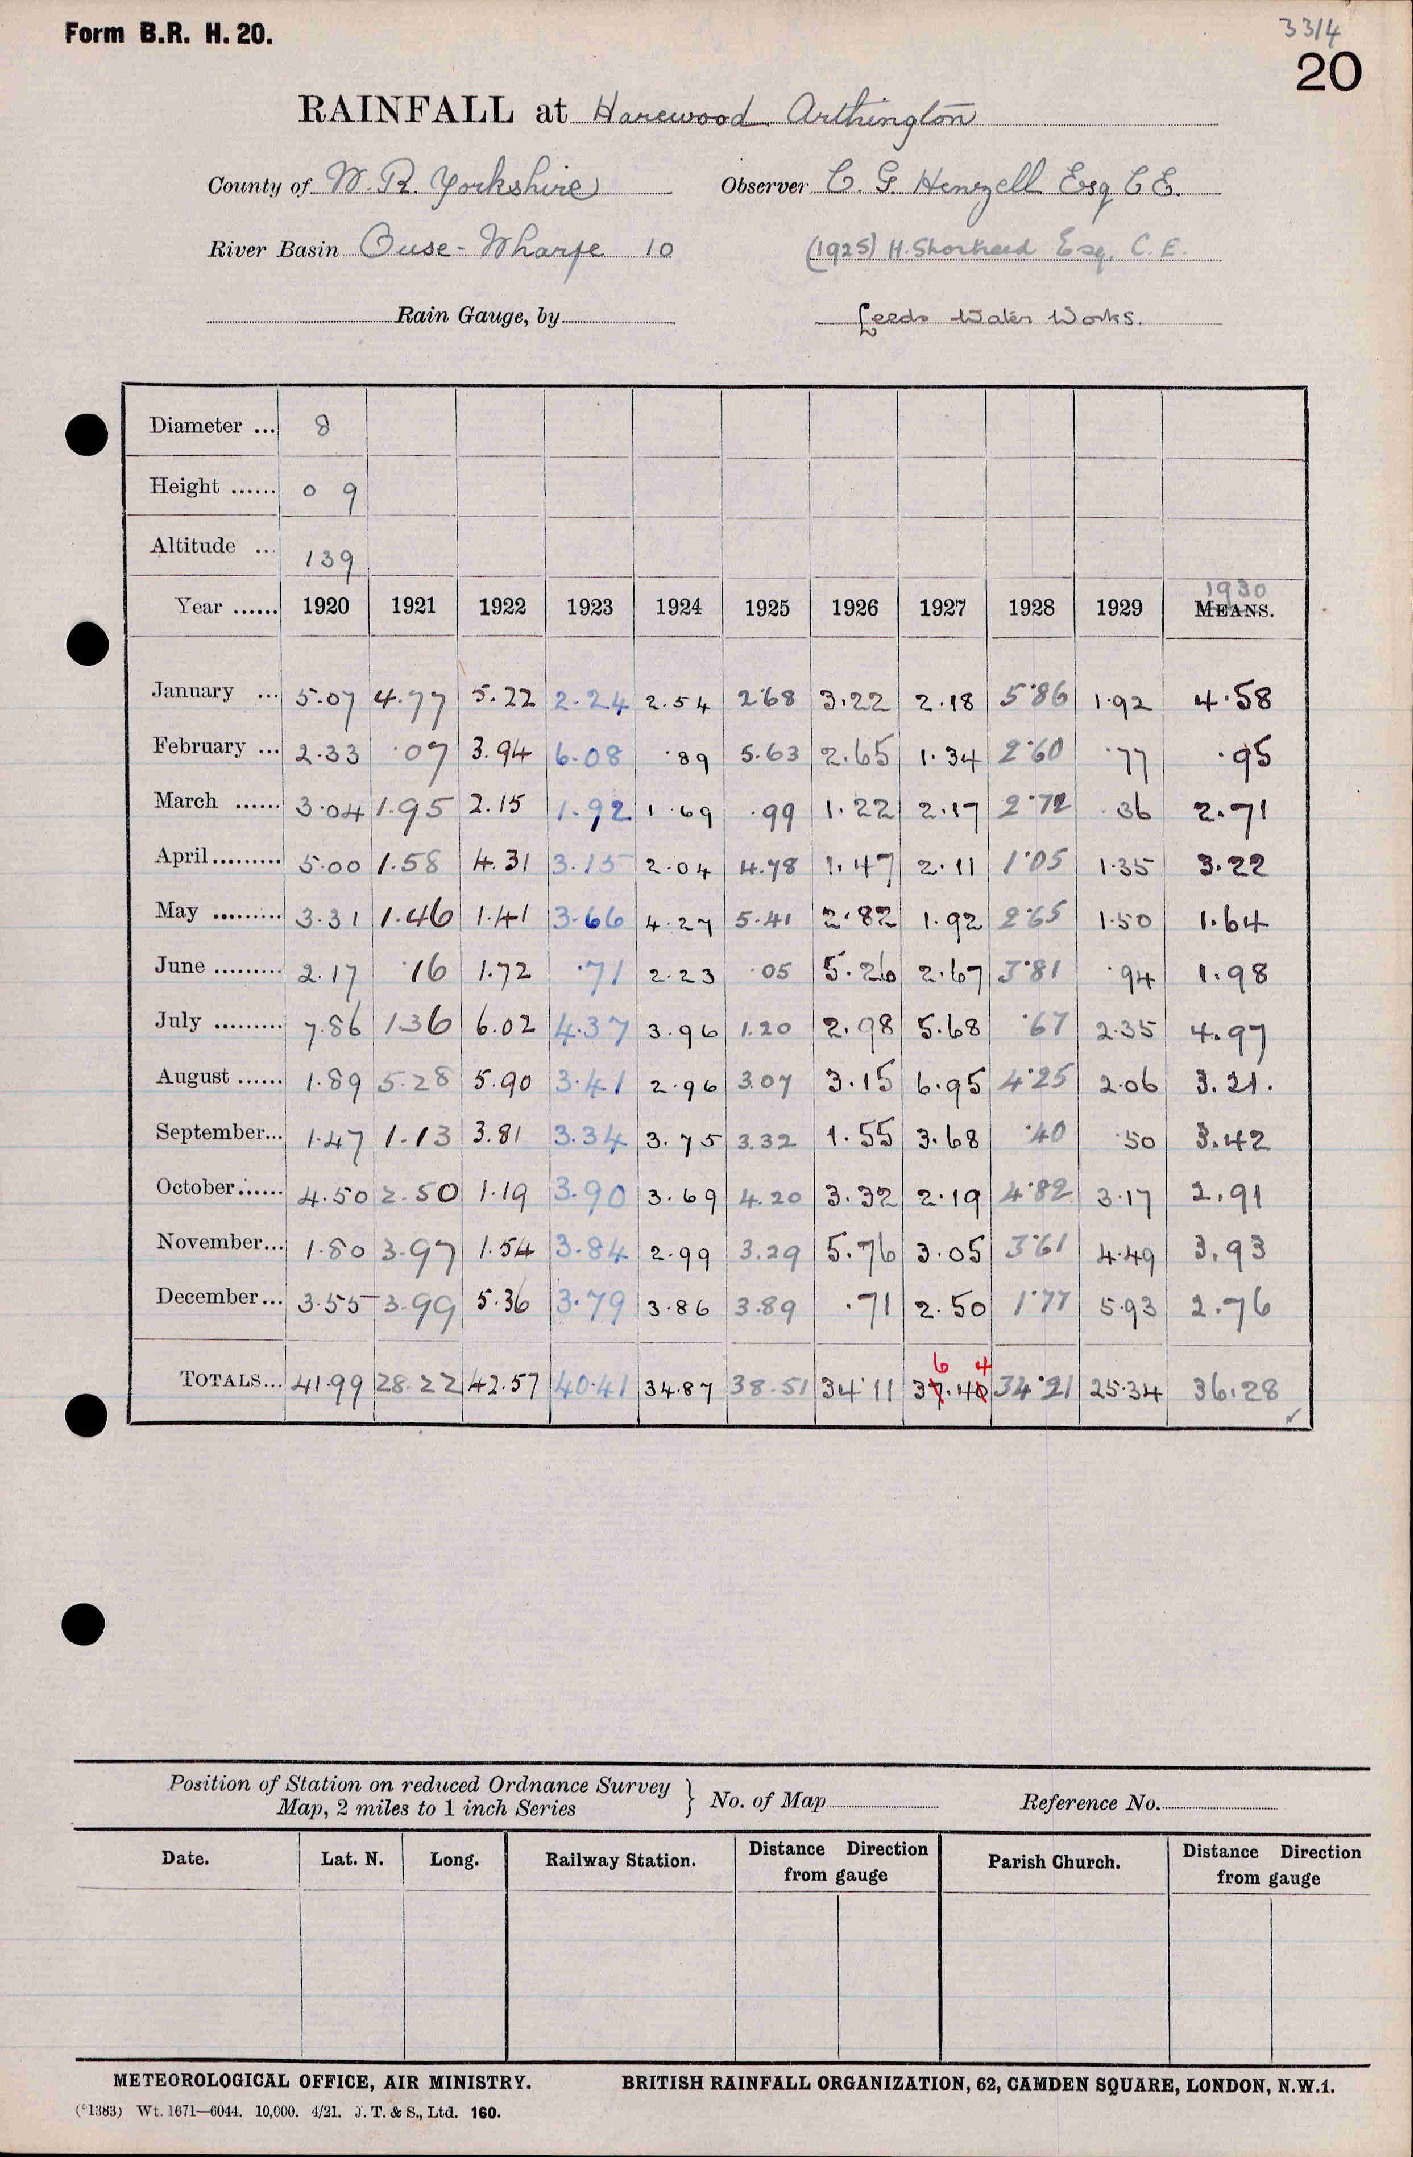 Form B.R. H. 20.
3314
20
RAINFALL at Harewood Arthington
County of W. R. Yorkshire Observer C. G. Henzell Esq C E.
River Basin Ouse - Wharfe 10 (1925) H. Shortreed Esq. C. E.
Rain Gauge, by Leeds Water Works.
Diameter ... 8
Height ...... 0 9
Altitude ... 139
1930
Year ...... 1920 1921 1922 1923 1924 1925 1926 1927 1928 1929 MEANS.
January ... 5.07 4.77 5.22 2.24 2.54 2.68 3.22 2.18 5.86 1.92 4.58
February ... 2.33 .07 3.94 6.08 .89 5.63 2.65 1.34 2.60 .77 .95
March ...... 3.04 1.95 2.15 1.92 1.69 .99 1.22 2.17 2.72 .36 2.71
April ......... 5.00 1.58 4.31 3.15 2.04 4.78 1.47 2.11 1.05 1.35 3.22
May ......... 3.31 1.46 1.41 3.66 4.27 5.41 2.82 1.92 2.65 1.50 1.64
June ......... 2.17 .16 1.72 .71 2.23 .05 5.26 2.67 3.81 .94 1.98
July ......... 7.86 1.36 6.02 4.37 3.96 1.20 2.98 5.68 .67 2.35 4.97
August ...... 1.89 5.28 5.90 3.41 2.96 3.07 3.15 6.95 4.25 2.06 3.21.
September... 1.47 1.13 3.81 3.34 3.75 3.32 1.55 3.68 .40 .50 3.42
October...... 4.50 2.50 1.19 3.90 3.69 4.20 3.32 2.19 4.82 3.17 2.91
November... 1.80 3.97 1.54 3.84 2.99 3.29 5.76 3.05 3.61 4.49 3.93
December... 3.55 3.99 5.36 3.79 3.86 3.89 .71 2.50 1.77 5.93 2.76
6 4
TOTALS... 41.99 28.22 42.57 40.41 34.87 38.51 34.11 37.40 34.21 25.34 36.28
Position of Station on reduced Ordnance Survey
Map, 2 miles to 1 inch Series } No. of Map Reference No.
Date. Lat. N. Long. Railway Station. Distance Direction from gauge Parish Church. Distance Direction from gauge
METEOROLOGICAL OFFICE, AIR MINISTRY. BRITISH RAINFALL ORGANIZATION, 62, CAMDEN SQUARE, LONDON, N.W.1.
(*1383) Wt. 1671—6044. 10,000. 4/21. J. T. & S., Ltd. 160.